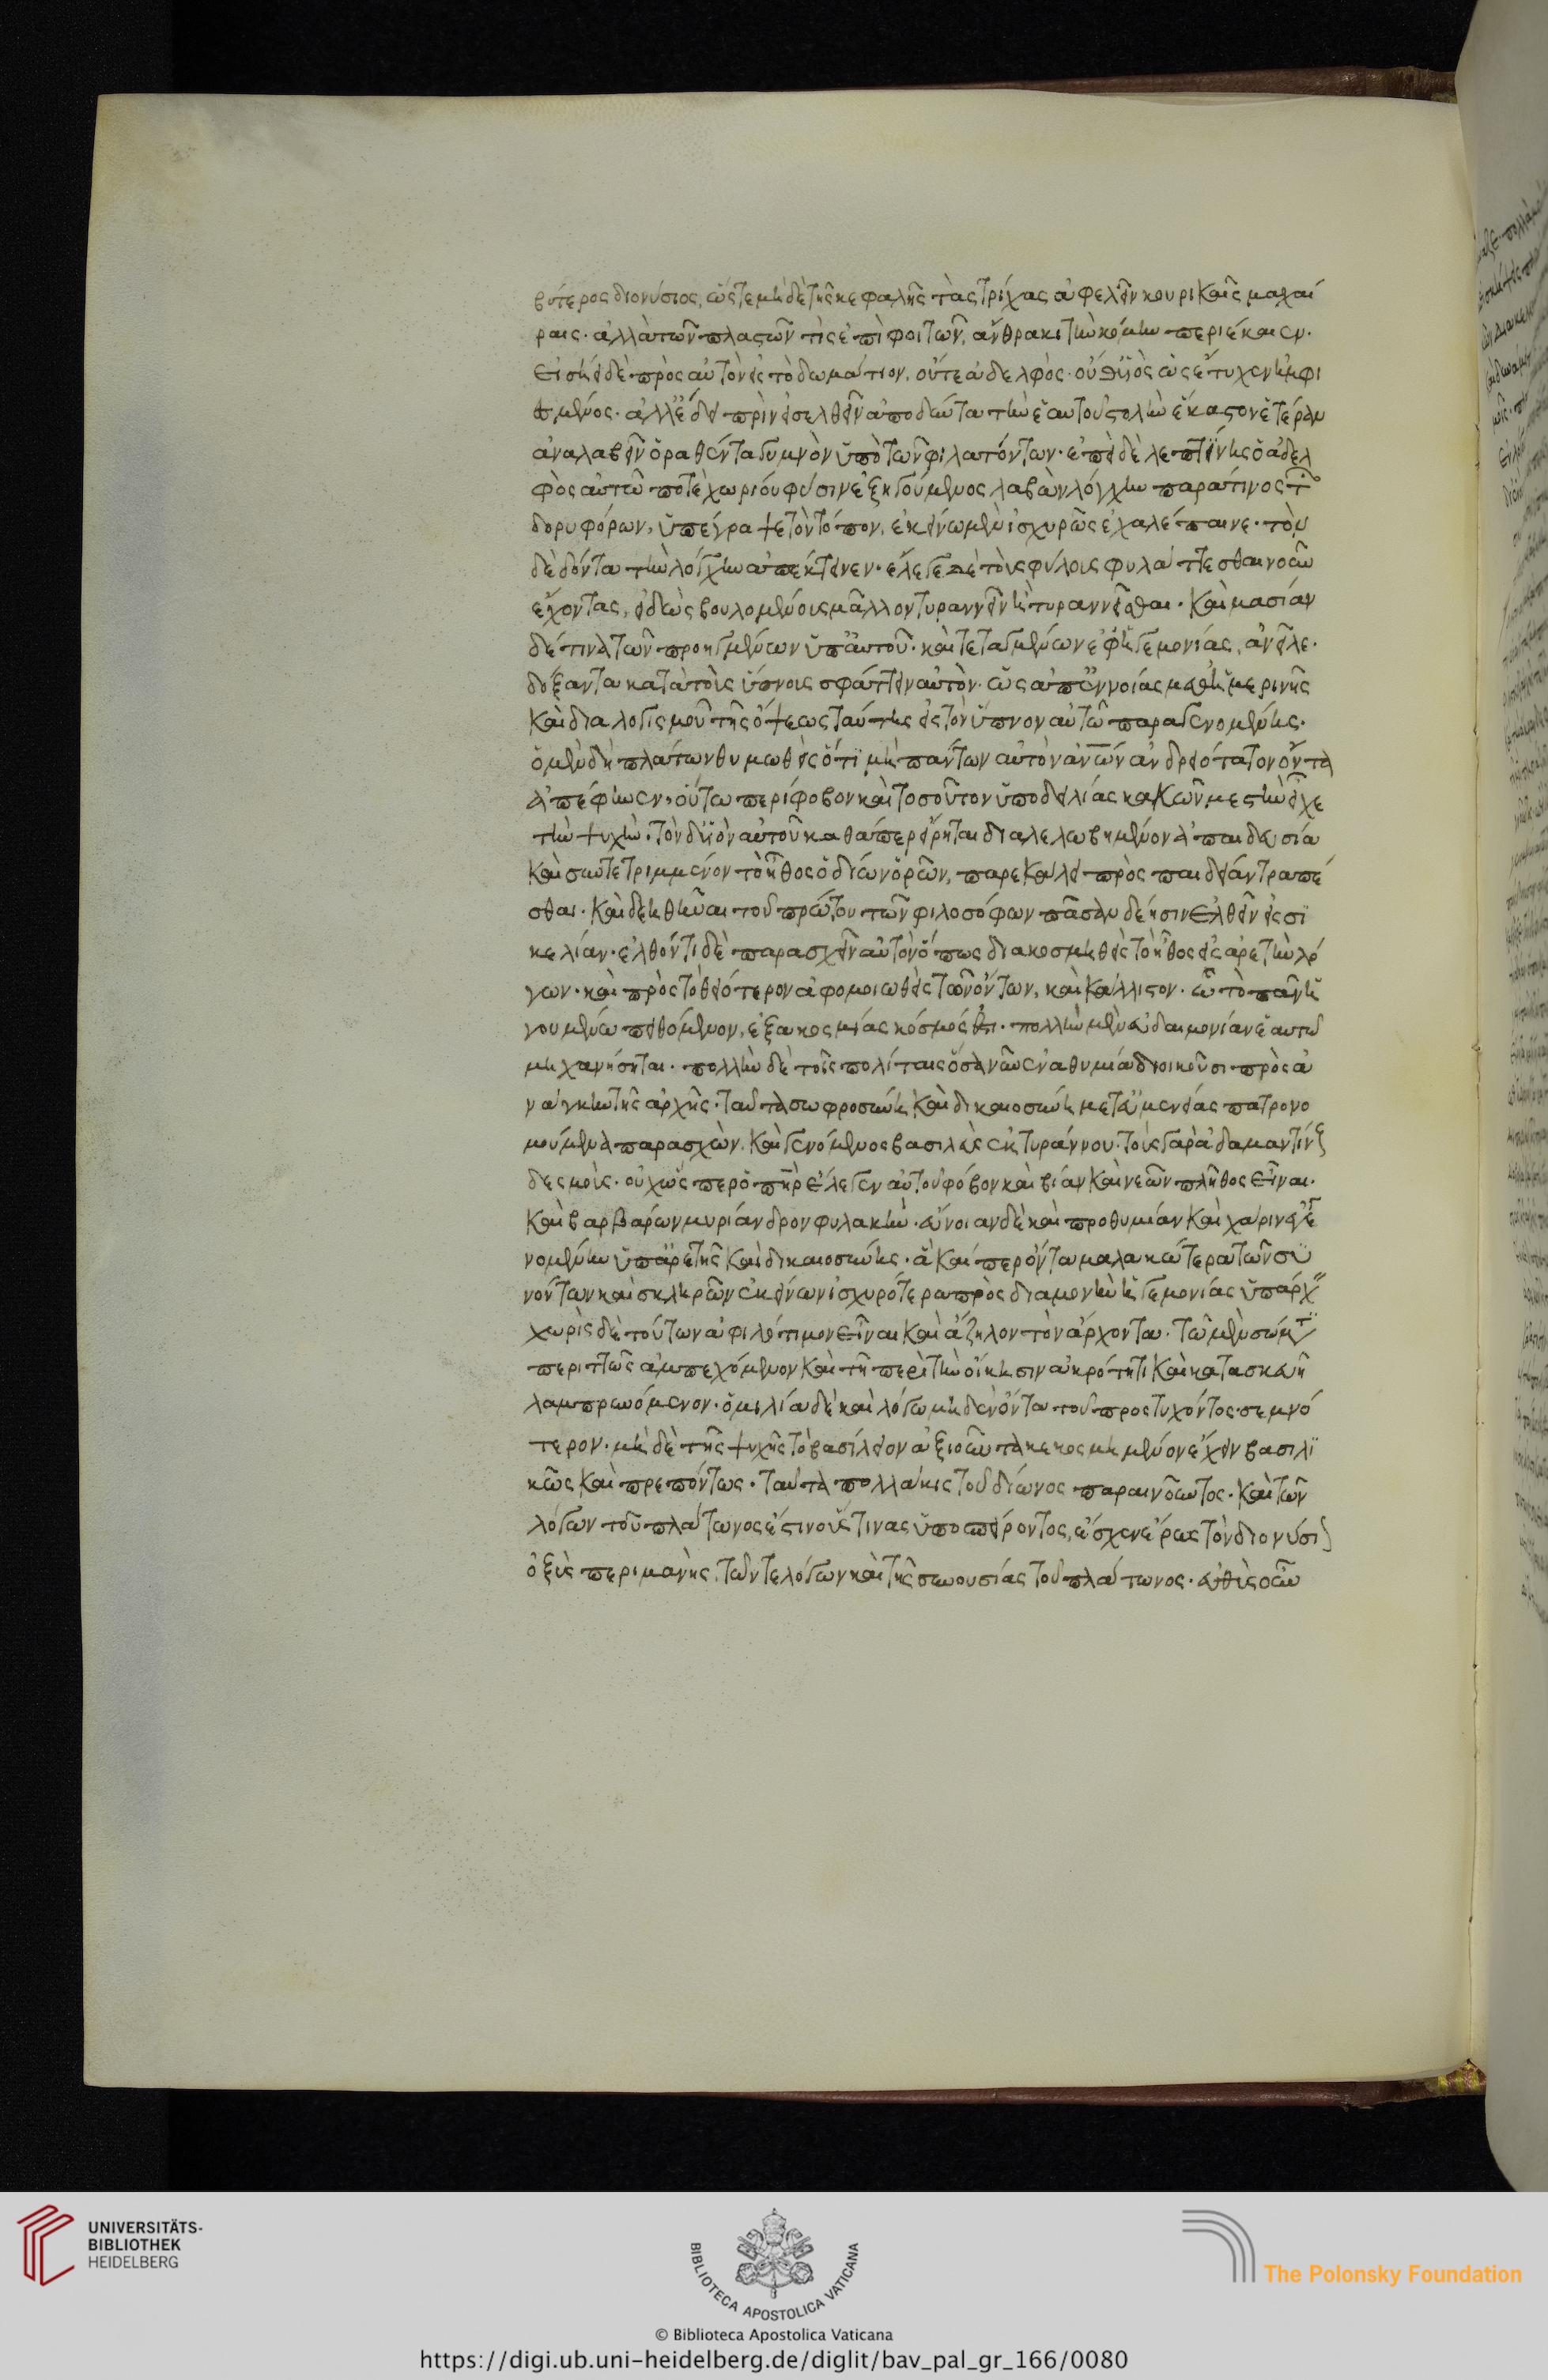 βύτερος διονύσιος, ὥστε μηδὲ τῆς κεφαλῆς τὰς τρίχας ἀφελεῖν κουρικαῖς μαχαί
ραις. ἀλλὰ τῶν πλαστῶν τίς ἐπιφοιτῶν, ἄνθρακι τὴν κόμην περιέκαιεν.
εἰσήει δὲ πρὸς αὐτὸν εἰς τὸ δωμάτιον, οὔτε ἀδελφὸς. οὔθ' υἱὸς ὡς ἔτυχεν ἠμφι
εσμένος. ἀλλ' ἔδει πρὶν εἰσελθεῖν ἀποδύντα τὴν ἑαυτοῦ στολὴν ἕκαστον ἑτέραν
ἀναλαβεῖν ὁραθέντα γυμνὸν ὑπὸ τῶν φυλαττόντων. ἐπεὶ δὲ λεπτίνης ὁ ἀδελ
φὸς αὐτῶ ποτὲ χωρίου φύσιν ἐξηγούμενος λαβὼν λόγχην παρά τινος τῶν
δορυφόρων, ὑπέγραψε τὸν τόπον, ἐκείνω μὲν ἰσχυρῶς ἐχαλέπαινε. τὸν
δὲ δόντα τὴν λόγχην ἀπέκτεινεν. ἔλεγε δὲ τοὺς φίλους φυλάττεσθαι νοῦν
ἔχοντας, εἰδὼς βουλομένους μᾶλλον τυραννεῖν ἢ τυραννεῖσθαι. καὶ μαρσύαν
δέ τινα τῶν προηγμένων ὑπ' αὐτοῦ. καὶ τεταγμένων ἐφ' ἡγεμονίας, ἀνεῖλε.
δόξαντα κατὰ τοὺς ὕπνους σφάττειν αὐτὸν. ὡς ἀπ' ἐννοίας μεθημερινῆς
καὶ διαλογισμοῦ τῆς ὄψεως ταύτης εἰς τὸν ὕπνον αὐτῶ παραγενομένης.
ὁ μὲν δὴ πλάτωνι θυμωθεὶς ὅτι μὴ πάντων αὐτὸν ἀνων ἀνδρειότατον ὄντα
ἀπέφηνεν, οὕτω περίφοβον καὶ τοσούτων ὑπὸ δειλίας κακῶν μεστὴν εἶχε
τὴν ψυχὴν. τὸν δ' υἱὸν αὐτοῦ καθάπερ εἴρηται διαλελωβημένον ἀπαιδευσία
καὶ συντετριμμένον τὸ ἦθος ὁ δίων ὁρῶν, παρεκάλει πρὸς παιδείαν τραπέ
σθαι. καὶ δεηθῆναι τοῦ πρώτου τῶν φιλοσόφων πᾶσαν δέησιν ἐλθεῖν εἰς σι
κελίαν. ἐλθόντι δὲ παρασχεῖν αὑτὸν ὅπως διακοσμηθεὶς τὸ ἦθος εἰς ἀρετὴν λό
γων. καὶ πρὸς τὸ θειότερον ἀφομοιωθεὶς τῶν ὄντων, καὶ κάλλιστον. ὧ τὸ πᾶν ἡ
γουμένω πειθόμενον, ἐξ ἀκοσμίας κόσμός ἐστι. πολλὴν μὲν εὐδαιμονίαν ἑαυτῶ
μηχανήσηται. πολλὴν δὲ τοῖς πολίταις ὅσα νῦν ἐν ἀθυμία διοικοῦσι πρὸς ἀ
νάγκην τῆς ἀρχῆς. ταῦτα σωφροσύνη καὶ δικαιοσύνη μετ' εὐμενείας πατρονο
μούμενα παρασχὼν. καὶ γενόμενος βασιλεὺς ἐκ τυράννου. τοὺς γὰρ ἀδαμαντίνους
δεσμοὺς. οὐχ ὥσπερ ὁ πῆρ ἔλεγεν αὐτοῦ φόβον καὶ βίαν καὶ νεῶν πλῆθος εἶναι.
καὶ βαρβάρων μυρίανδρον φυλακὴν. εὔνοιαν δὲ καὶ προθυμίαν καὶ χάριν ἐγγε
νομένην ὑπ' ἀρετῆς καὶ δικαιοσύνης. ἃ καίπερ ὄντα μαλακώτερα τῶν συν
τόνων καὶ σκληρῶν ἐκείνων ἰσχυρότερα πρὸς διαμονὴν ἡγεμονίας ὑπάρχειν
χωρὶς δὲ τούτων ἀφιλότιμον εἶναι καὶ ἄζηλον τὸν ἄρχοντα. τῶ μὲν σώματι
περιττῶς ἀμπεχόμενον καὶ τῆ περὶ τὴν οἴκησιν ἁβρότητι καὶ κατασκευῆ
λαμπρυνόμενον. ὁμιλία δὲ καὶ λόγω μηδὲν ὄντα τοῦ προστυχόντος σεμνό
τερον. μηδὲ τῆς ψυχῆς τὸ βασίλειον ἀξιοῦντα κεκοσμημένον ἔχειν βασιλι
κῶς καὶ πρεπόντως. ταῦτα πολλάκις τοῦ δίωνος παραινοῦντος. καὶ τῶν
λόγων τοῦ πλάτωνος ἔστιν οὕστινας ὑποσπείροντος, ἔσχεν ἔρως τὸν διονύσιον
ὀξὺς περιμανὴς. τῶν τε λόγων καὶ τῆς συνουσίας τοῦ πλάτωνος. εὐθὺς οὖν
UNIVERSITÄTS-
BIBLIOTHEK
HEIDELBERG
BIBLIOTECA APOSTOLICA VATICANA
The Polonsky Foundation
© Biblioteca Apostolica Vaticana
https://digi.ub.uni-heidelberg.de/diglit/bav_pal_gr_166/0080